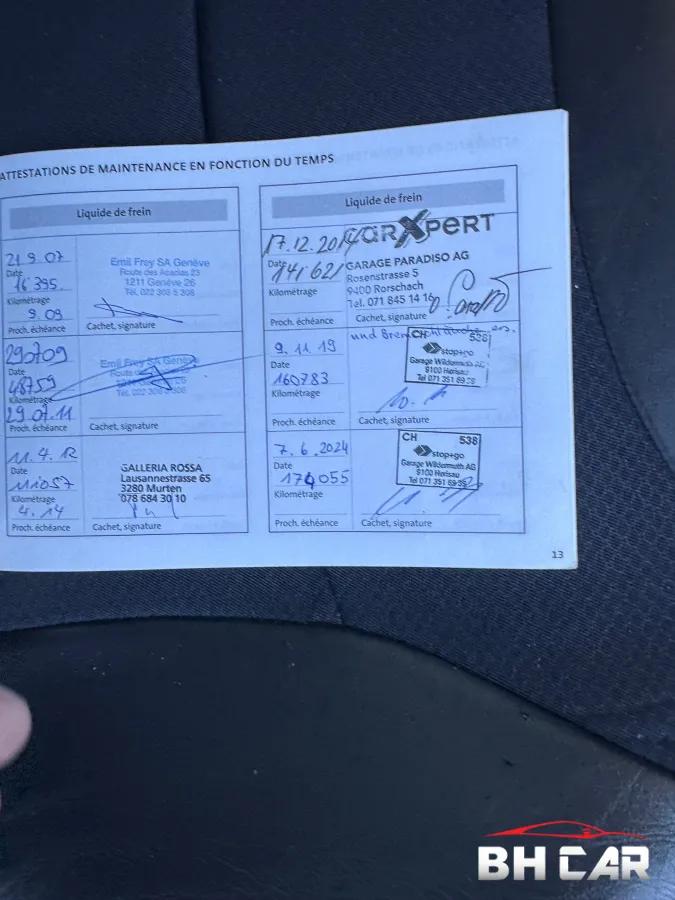 ATTESTATIONS DE MAINTENANCE EN FONCTION DU TEMPS
Liquide de frein
21.9.07
Date
16 395.
Kilométrage
9.09
Proch. échéance
Emil Frey SA Genève
Route des Acacias 23
1211 Genève 26
Tél. 022 308 5 308
Cachet, signature
290709
Date
48759
Kilométrage
29.07.11
Proch. échéance
Emil Frey SA Genève
Cachet, signature
11.4.12
Date
111057
Kilométrage
4.14
Proch. échéance
GALLERIA ROSSA
Lausannestrasse 65
3280 Murten
078 684 30 10
Cachet, signature
Liquide de frein
17.12.2014
Date
141621
Kilométrage
Proch. échéance
CARXPERT
GARAGE PARADISO AG
Rosenstrasse 5
9400 Rorschach
Tel. 071 845 14 16
Cachet, signature
und Bremsschläuche ers.
9.11.19
Date
160783
Kilométrage
Proch. échéance
CH 538
stop+go
Garage Wildermuth AG
9100 Herisau
Tel 071 351 69 38
Cachet, signature
7.6.2024
Date
174055
Kilométrage
Proch. échéance
CH 538
stop+go
Garage Wildermuth AG
9100 Herisau
Tel 071 351 69 38
Cachet, signature
13
BH CAR